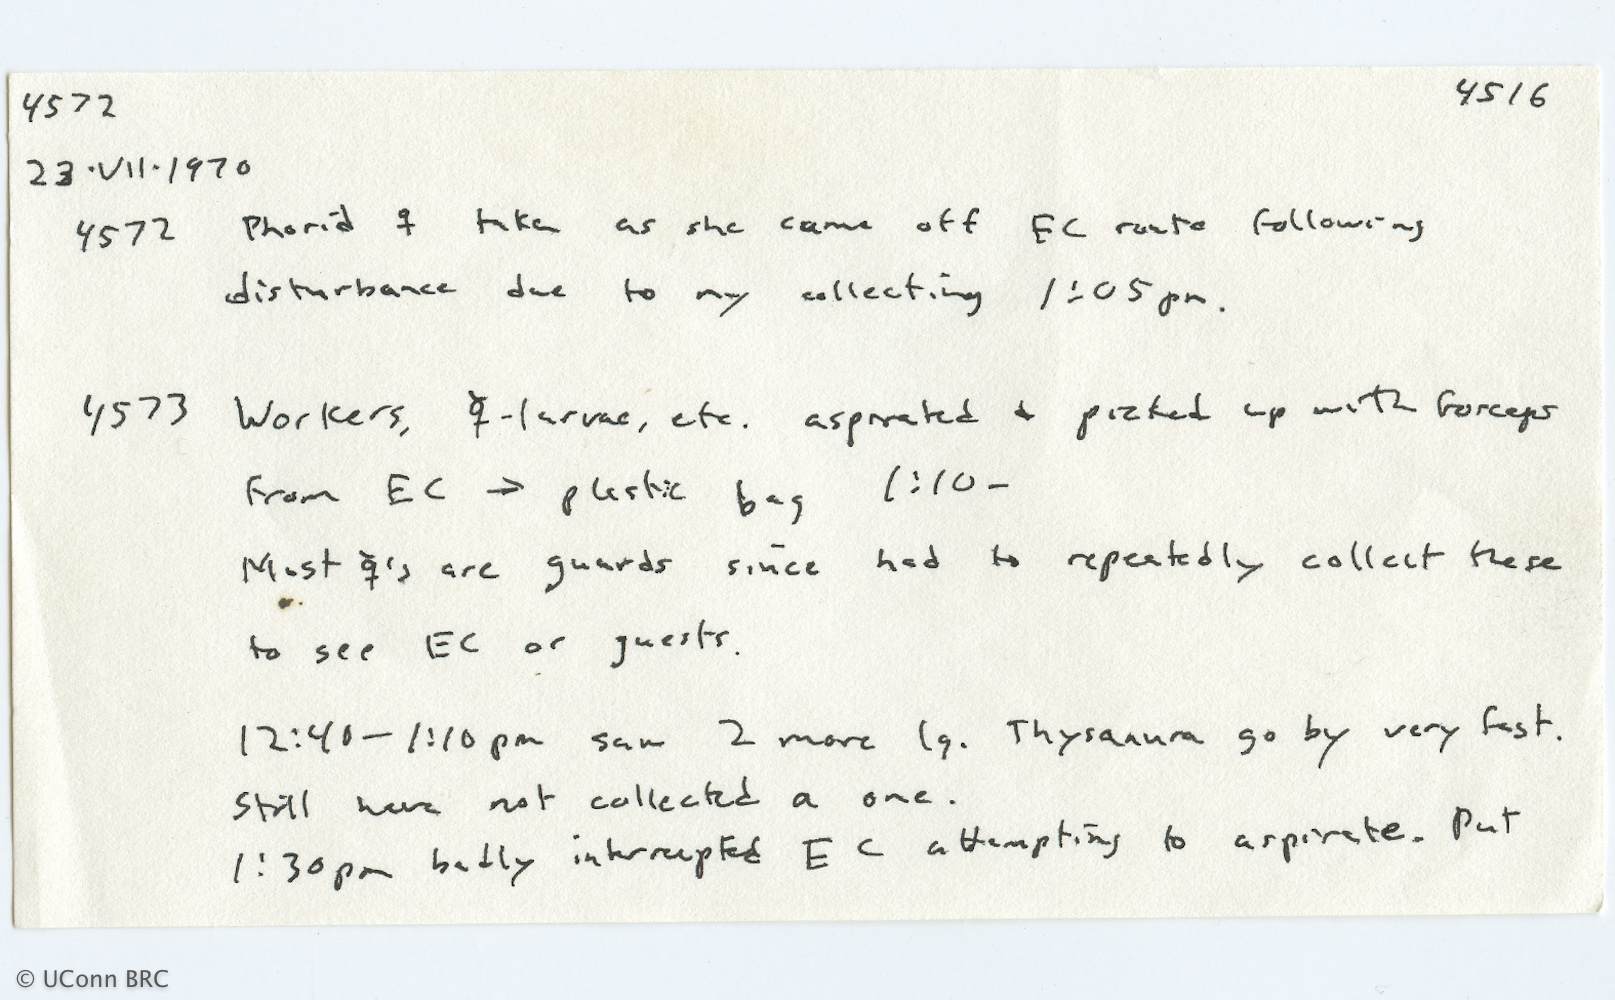 4572
4516
23·VII·1970
4572 Phorid ♀ taken as she came off EC route following
disturbance due to my collecting 1:05 pm.
4573 Workers, ☿-larvae, etc. aspirated & picked up with forceps
from EC → plastic bag 1:10-
Most ☿'s are guards since had to repeatedly collect these
to see EC or guests.
12:40-1:10 pm saw 2 more lg. Thysanura go by very fast.
Still have not collected a one.
1:30 pm badly interrupted EC attempting to aspirate. Put
© UConn BRC